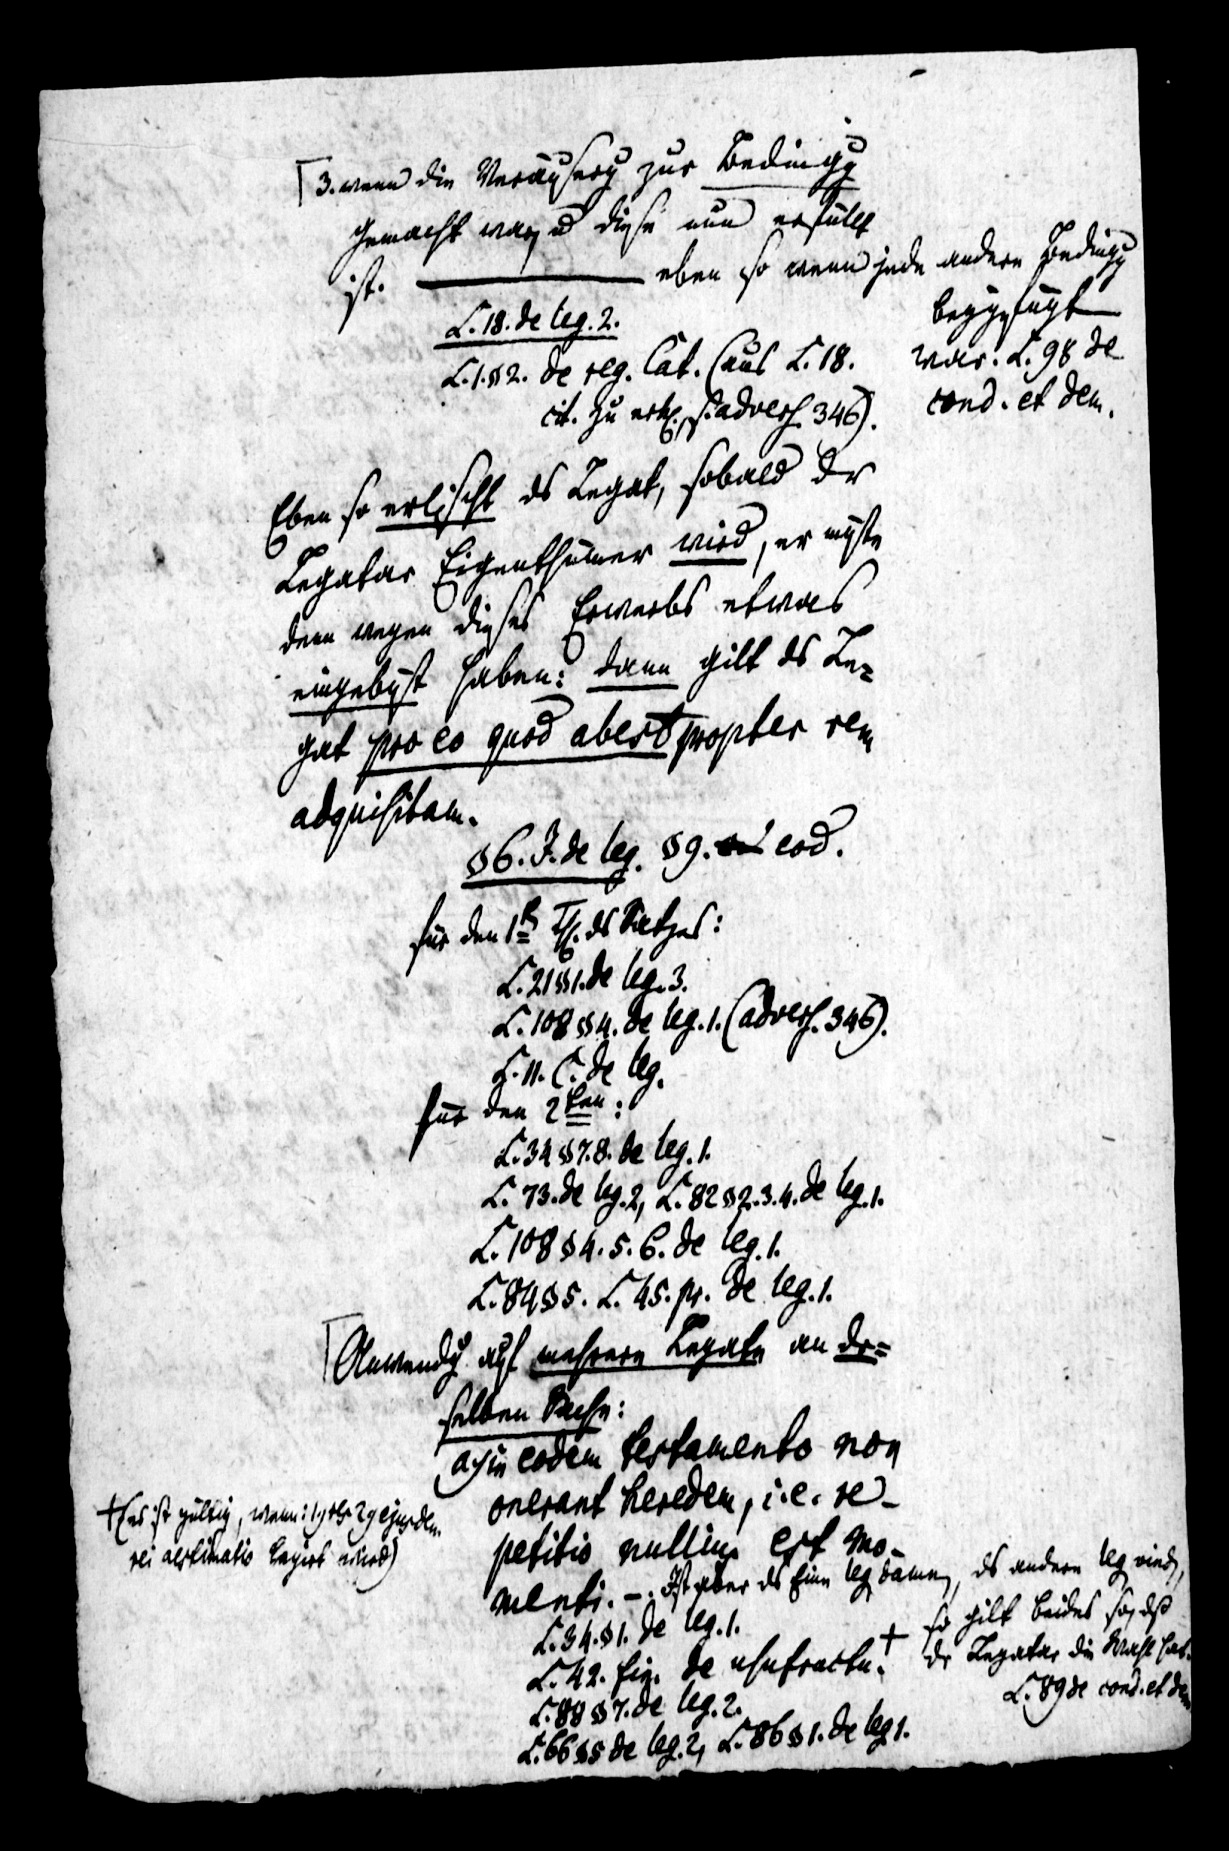 3. wenn die Veräußerg zur Bedingg
gemacht war, u diese nun erfüllt
ist. — eben so wenn jede andere Bedingg
beygefügt
war. L. 98 de
cond. et dem.
L. 18. de leg. 2.
L. 1. § 2. de reg. Cat. (aus L. 18.
cit. zu erkl., s. advers. 346).
Eben so erlischt ds Legat, sobald dr
Legatar Eigenthümer wird, er müßte
denn wegen dieses Erwerbs etwas
eingebüßt haben: dann gilt ds Le=
gat pro eo quod abest propter rem
adquisitam.
§ 6. J. de leg. § 9. eod.
für den 1n Th. ds Satzes:
L. 21 § 1. de leg. 3.
L. 108 § 4. de leg. 1. (advers. 346).
L. 11. C. de leg.
für den 2ten:
L. 34 § 7. 8. de leg. 1.
L. 73. de leg. 2, L. 82 § 2. 3. 4. de leg. 1.
L. 108 § 4. 5. 6. de leg. 1.
L. 84 § 5. L. 45. pr. de leg. 1.
Anwendg auf mehrere Legate an dr=
selben Sache:
a) in eodem testamento non
onerant heredem, i. e. re-
petitio nullius est mo-
menti. –. Ist aber ds Eine leg. damn, ds andere leg. vind,
so gilt beides so, dß
dr Legatar die Wahl hat.
L. 89 de cond. et dem
L. 34. § 1. de leg. 1.
L. 42. fin. de usufructu. +
L. 88 § 7. de leg. 2.
L. 66 § 5 de leg. 2, L. 86 § 1. de leg 1.
+ (es ist gültig, wenn: 1) res 2) ejusdem
rei aestimatio legirt wird)